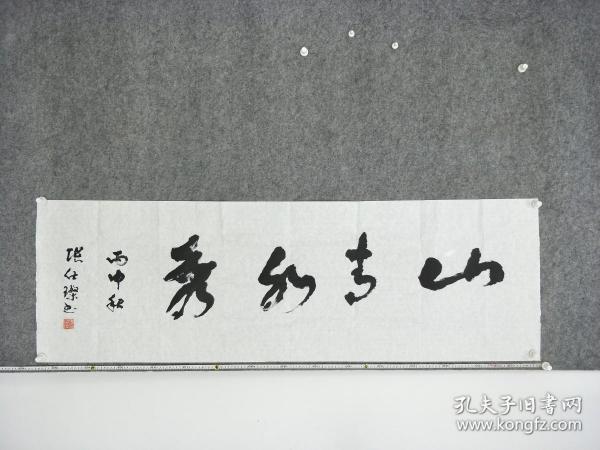 山青水秀
丙申秋
张仕璨书
孔夫子旧书网
www.kongfz.com